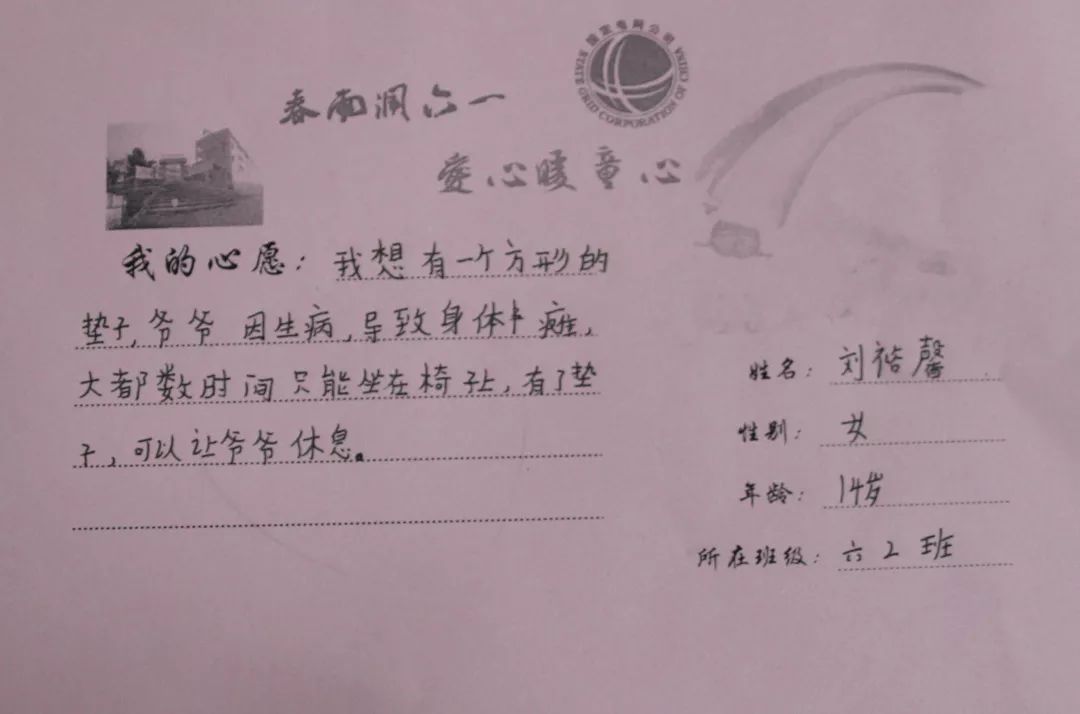 国家电网公司
STATE GRID CORPORATION OF CHINA
春雨润六一
爱心暖童心
我的心愿：我想有一个方形的
垫子，爷爷因生病，导致身体瘫，
大都数时间只能坐在椅子上，有了垫
子，可以让爷爷休息。
姓名：刘禧馨
性别：女
年龄：14岁
所在班级：六2班